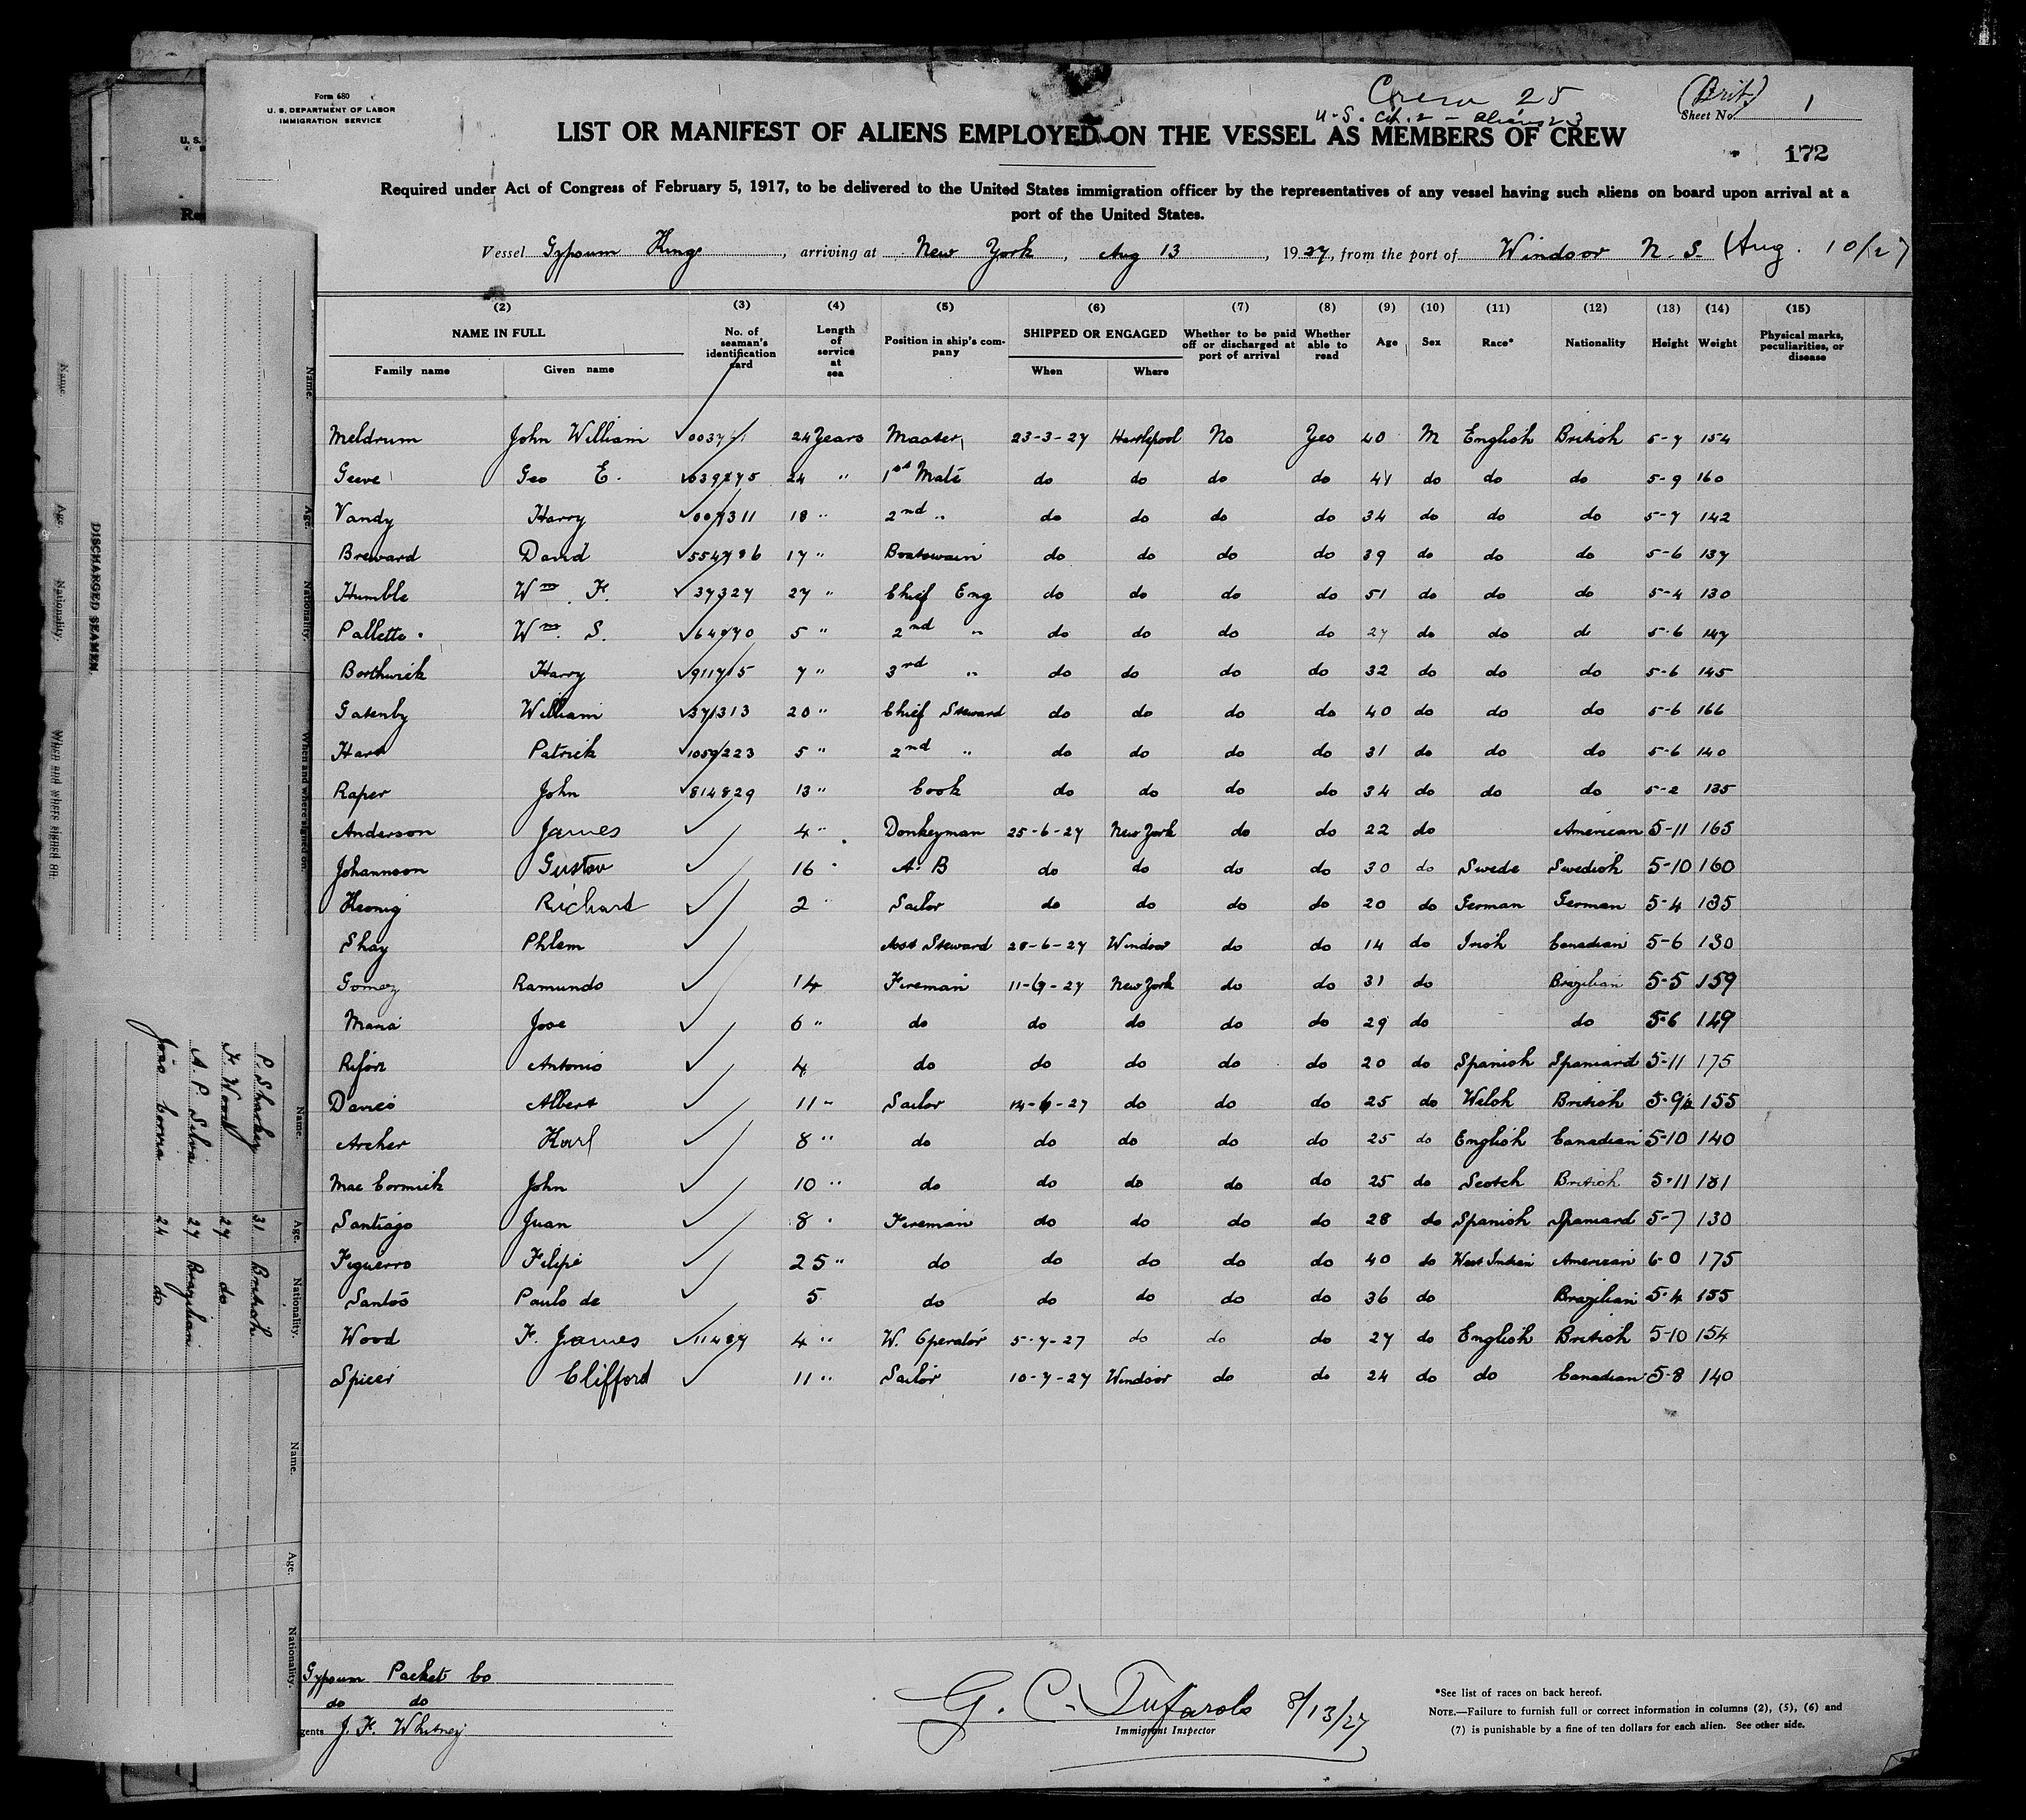 Form 680
U. S. DEPARTMENT OF LABOR
IMMIGRATION SERVICE
Crew 25
(Brit)
U.S. Cit. 2 — Aliens 23
Sheet No. 1
LIST OR MANIFEST OF ALIENS EMPLOYED ON THE VESSEL AS MEMBERS OF CREW
172
Required under Act of Congress of February 5, 1917, to be delivered to the United States immigration officer by the representatives of any vessel having such aliens on board upon arrival at a
port of the United States.
Vessel Gypsum King, arriving at New York, Aug 13, 1927, from the port of Windsor N. S. (Aug. 10/27)
(2) (3) (4) (5) (6) (7) (8) (9) (10) (11) (12) (13) (14) (15)
NAME IN FULL Family name Given name No. of seaman's identification card Length of service at sea Position in ship's company SHIPPED OR ENGAGED When Where Whether to be paid off or discharged at port of arrival Whether able to read Age Sex Race* Nationality Height Weight Physical marks, peculiarities, or disease
Meldrum John William 24 Years Master 23-3-27 Hartlepool No Yes 40 M English British 5-7 154
Geeve Geo E. 24 " 1st Mate do do do do do do do 5-9 160
Vandy Harry 18 " 2nd " do do do do 34 do do do 5-7 142
Breward David 17 " Boatswain do do do do 39 do do do 5-6 137
Humble Wm F. 37327 27 " Chief Eng do do do do 51 do do do 5-4 130
Pallette Wm. S. 5 " 2nd " do do do do 27 do do do 5-6 147
Borthwick Harry 7 " 3rd " do do do do 32 do do do 5-6 145
Gatenby William 371313 20 " Chief Steward do do do do 40 do do do 5-6 166
Hart Patrick 1059223 5 " 2nd " do do do do 31 do do do 5-6 140
Raper John 814829 13 " Cook do do do do 34 do do do 5-2 135
Anderson James 4 " Donkeyman 25-6-27 New York do do 22 do American 5-11 165
Johannson Gustov 16 " A. B do do do do 30 do Swede Swedish 5-10 160
Keonig Richard 2 " Sailor do do do do 20 do German German 5-4 135
Shay Phlem Asst Steward 28-6-27 Windsor do do 14 do Irish Canadian 5-6 130
Gomez Ramundo 14 Fireman 11-6-27 New York do do 31 do Brazilian 5-5 159
Maria Jose 6 " do do do do do 29 do do 5-6 149
Antonio 4 do do do do do 20 do Spanish Spaniard 5-11 175
Davies Albert 11 " Sailor 14-6-27 do do do 25 do Welsh British 5-9½ 155
Archer Karl 8 " do do do do do 25 do English Canadian 5-10 140
Mac Cormick John 10 " do do do do do 25 do Scotch British 5-11 181
Santiago Juan 8 " Fireman do do do do 28 do Spanish Spaniard 5-7 130
Figuerro Filipe 25 " do do do do do 40 do West Indian American 6-0 175
Santos Paulo de 5 do do do do do 36 do Brazilian 5-4 155
Wood F. James 11487 4 " W. Operator 5-7-27 do do do 27 do English British 5-10 154
Spicer Clifford 11 " Sailor 10-7-27 Windsor do do 24 do do Canadian 5-8 140
Gypsum Packet Co
do do
gents J. F. Whitney
8/13/27
Immigrant Inspector
*See list of races on back hereof.
NOTE.—Failure to furnish full or correct information in columns (2), (5), (6) and
(7) is punishable by a fine of ten dollars for each alien. See other side.
DISCHARGED SEAMEN.
Name. Age. Nationality. When and where signed on.
Name. Age. Nationality.
P. Sharkey 31 British
F. Wood 27 do
A. P. Silvia 27 Brazilian
24 do
Name. Age. Nationality.